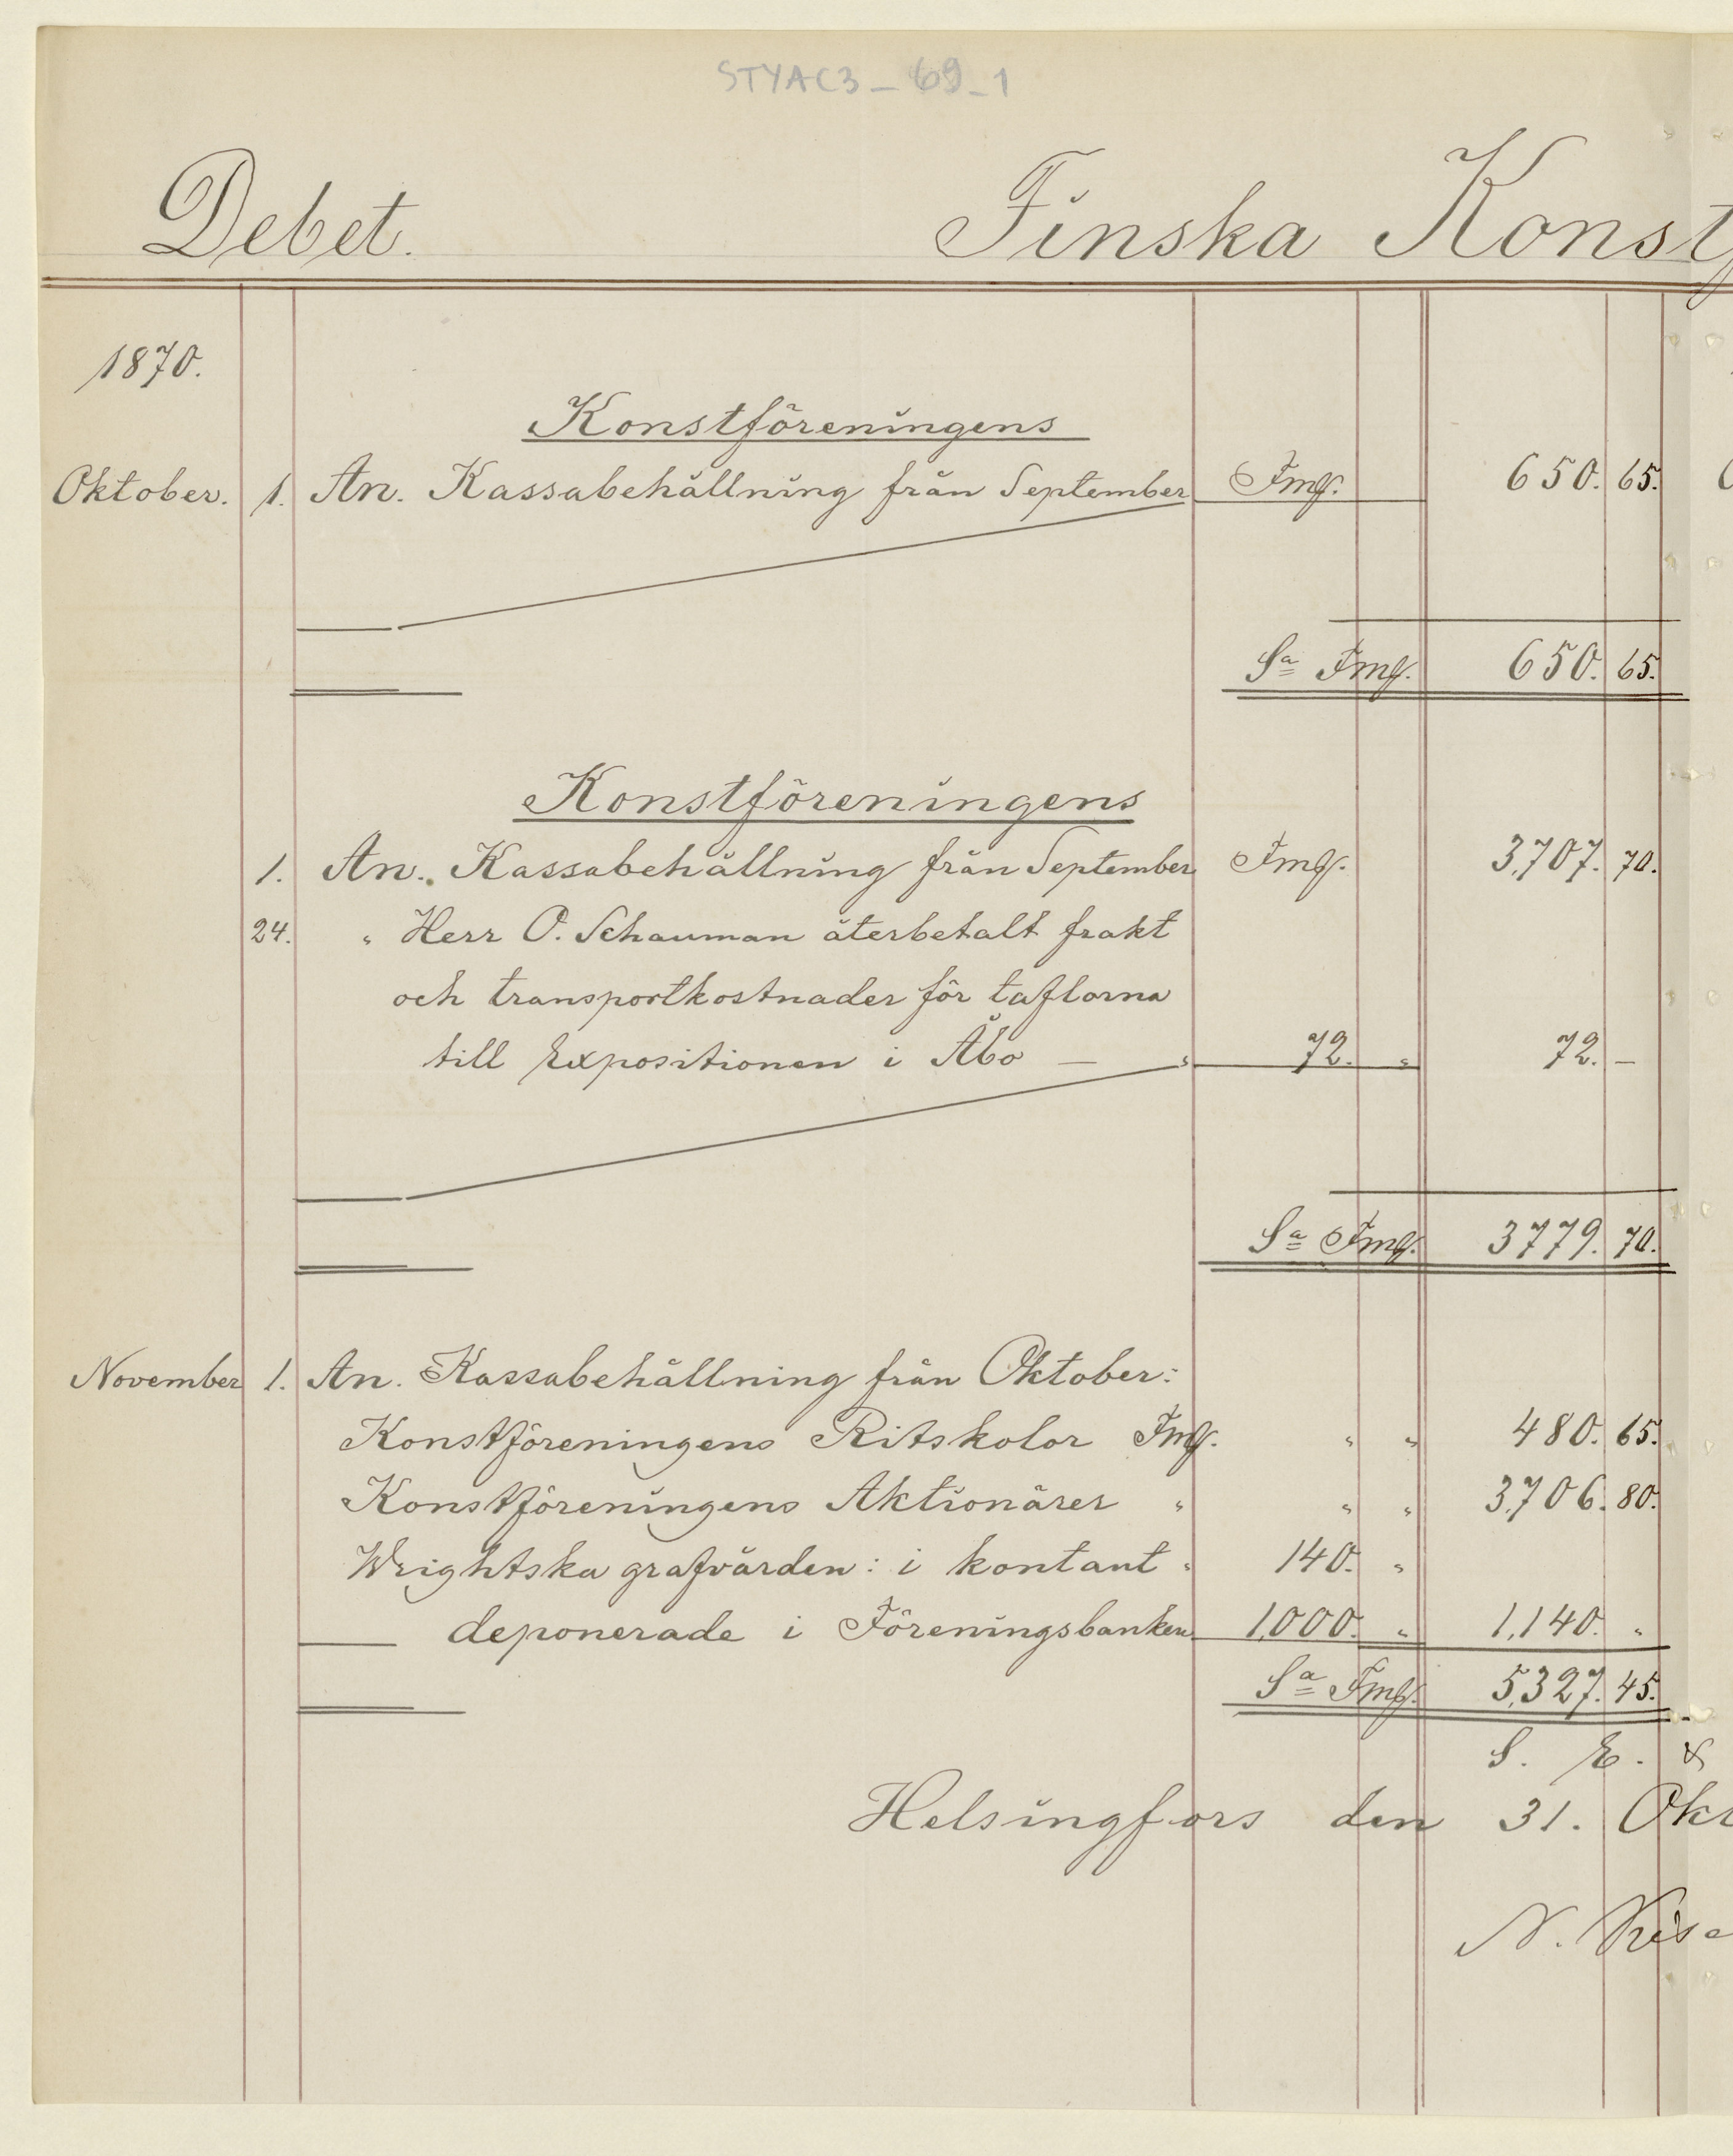 STYAC3_69_1
Debet. Finska Konst
1870.
Konstföreningens
Oktober. 1. An. Kassabehållning från September Fmg. 650. 65.
Sa Fmg. 650. 65.
Konstföreningens
1. An. Kassabehållning från September Fmg. 3,707. 70.
24. " Herr O. Schauman återbetalt frakt
och transportkostnader för taflorna
till Expositionen i Åbo — " 72. " 72. —
Sa Fmg. 3779. 70.
November 1. An. Kassabehållning från Oktober:
Konstföreningens Ritskolor Fmg. " " 480. 65.
Konstföreningens Aktionärer " " " 3,706. 80.
Wrightska grafvården: i kontant " 140. "
deponerade i Föreningsbanken 1,000. " 1,140. "
Sa Fmg. 5,327. 45.
S. E. &
Helsingfors den 31. Okt
N.